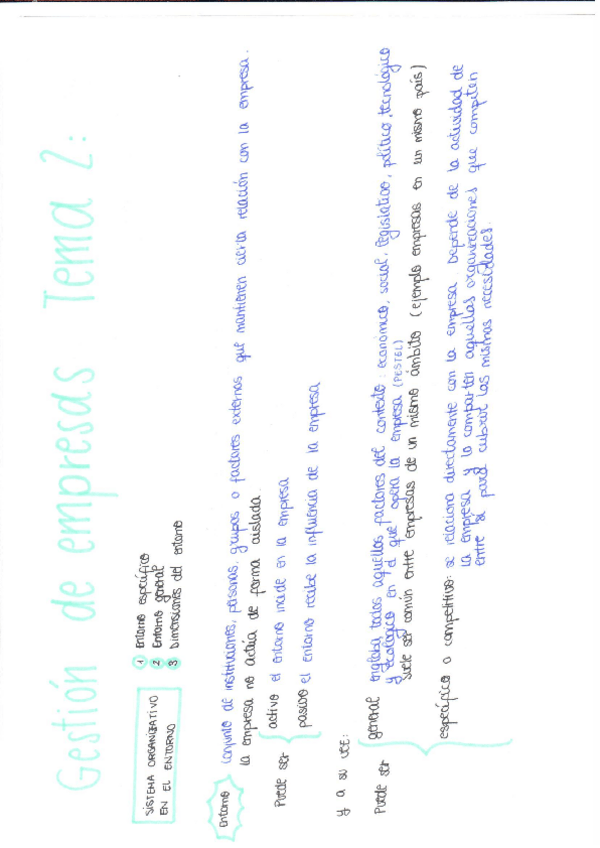 Gestión de empresas Tema 2:
SISTEMA ORGANIZATIVO
EN EL ENTORNO
1 Entorno específico
2 Entorno general
3 Dimensiones del entorno
Entorno
conjunto de instituciones, personas, grupos o factores externos que mantienen cierta relación con la empresa.
la empresa no actúa de forma aislada.
Puede ser
activo el entorno incide en la empresa
pasivo el entorno recibe la influencia de la empresa
y a su vez:
Puede ser
general engloba todos aquellos factores del contexto: económico, social, legislativo, político, tecnológico
y ecológico en el que opera la empresa (PESTEL)
Suele ser común entre empresas de un mismo ámbito (ejemplo empresas en un mismo país)
específico o competitivo: se relaciona directamente con la empresa. Depende de la actividad de
la empresa y lo comparten aquellas organizaciones que compiten
entre sí para cubrir las mismas necesidades.